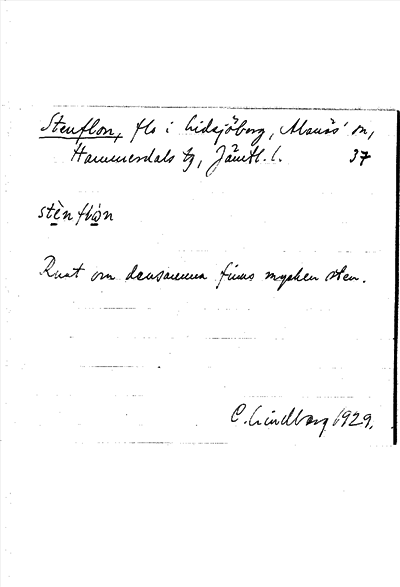 Stenflon, flo i Lidsjöberg, Alanäs' sn,
Hammerdals tg, Jämtl. l. 37
stèn flòn
Runt om densamma finns mycken sten.
C. Lindberg 1929.